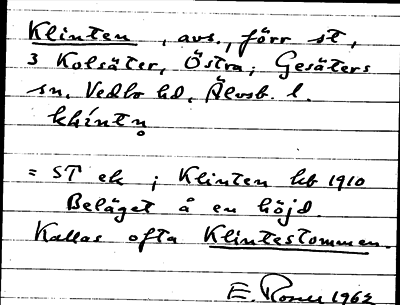 Klinten, avs., förr st,
3 Kolsäter, Östra; Gesäters
sn. Vedbo hd, Älvsb. l.
= ST ek; Klinten kb 1910
Beläget å en höjd.
Kallas ofta Klintestommen.
E. 1962